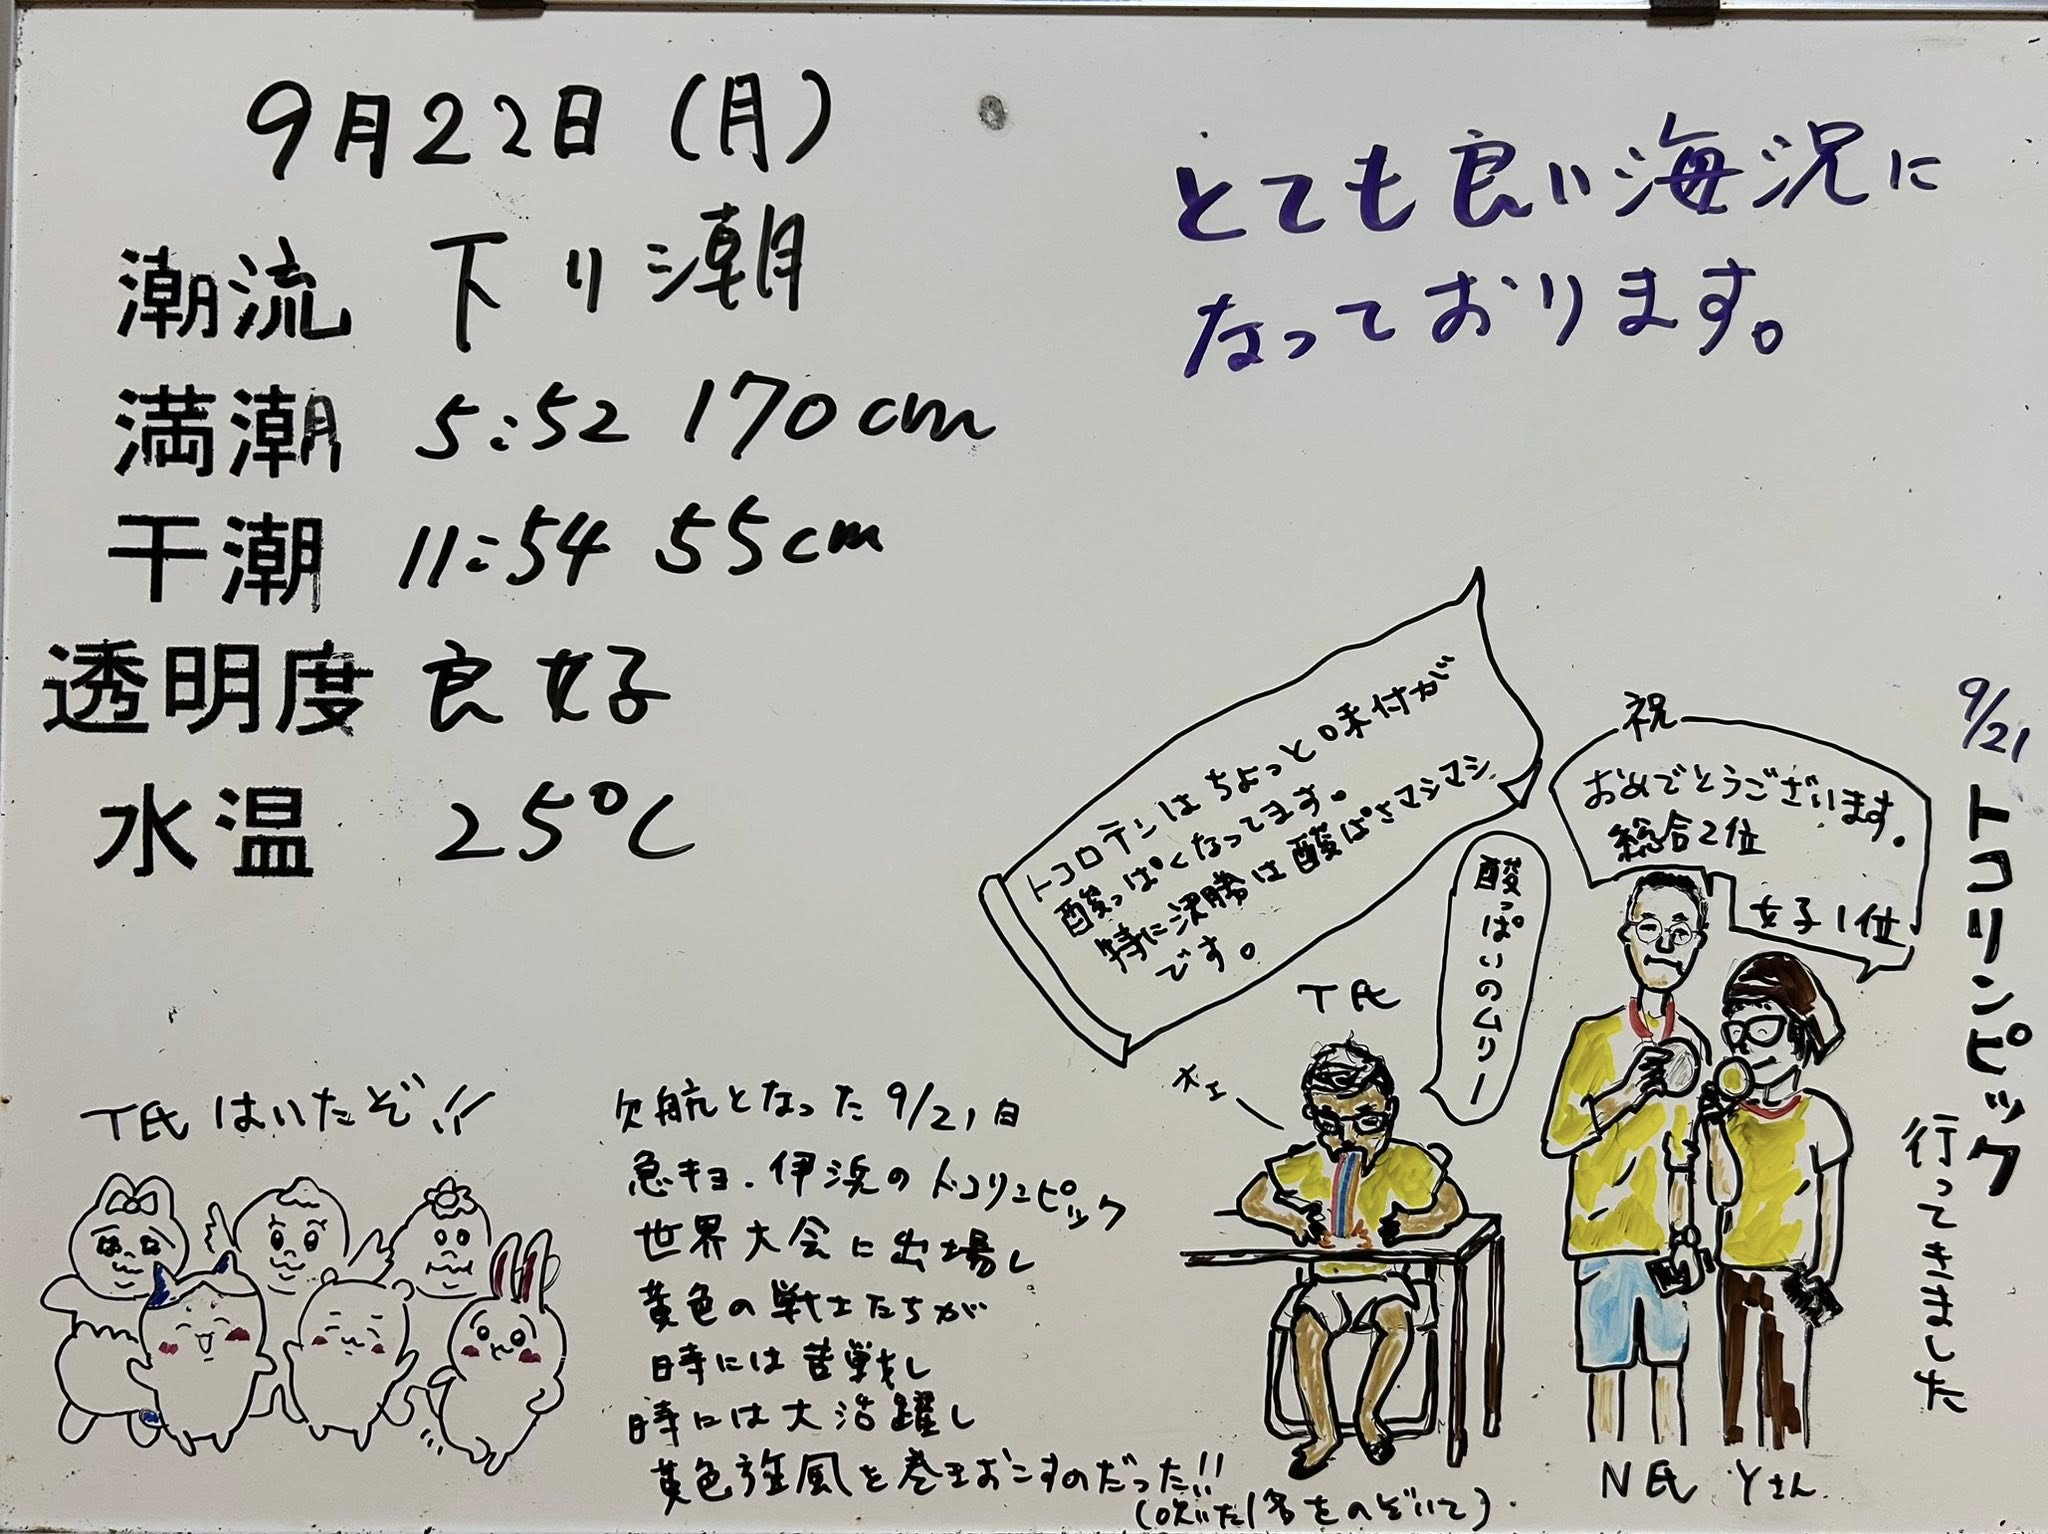 9月22日(月)
潮流 下り潮
満潮 5:52 170cm
干潮 11:54 55cm
透明度 良好
水温 25℃
とても良い海況に
なっております。
9/21 トコリンピック
行ってきました
祝
おめでとうございます。
総合2位
女子1位
トコロテンはちょっと味付が
酸っぱくなってます。
特に決勝は酸ぱさマシマシ
です。
酸っぱいのムリー
T氏
オエ
N氏 Yさん
T氏はいたぞ!!
欠航となった9/21日
急キョ.伊浜のトコリンピック
世界大会に出場し
黄色の戦士たちが
時には苦戦し
時には大活躍し
黄色旋風を巻きおこすのだった!!
(吹いた1名をのぞいて).